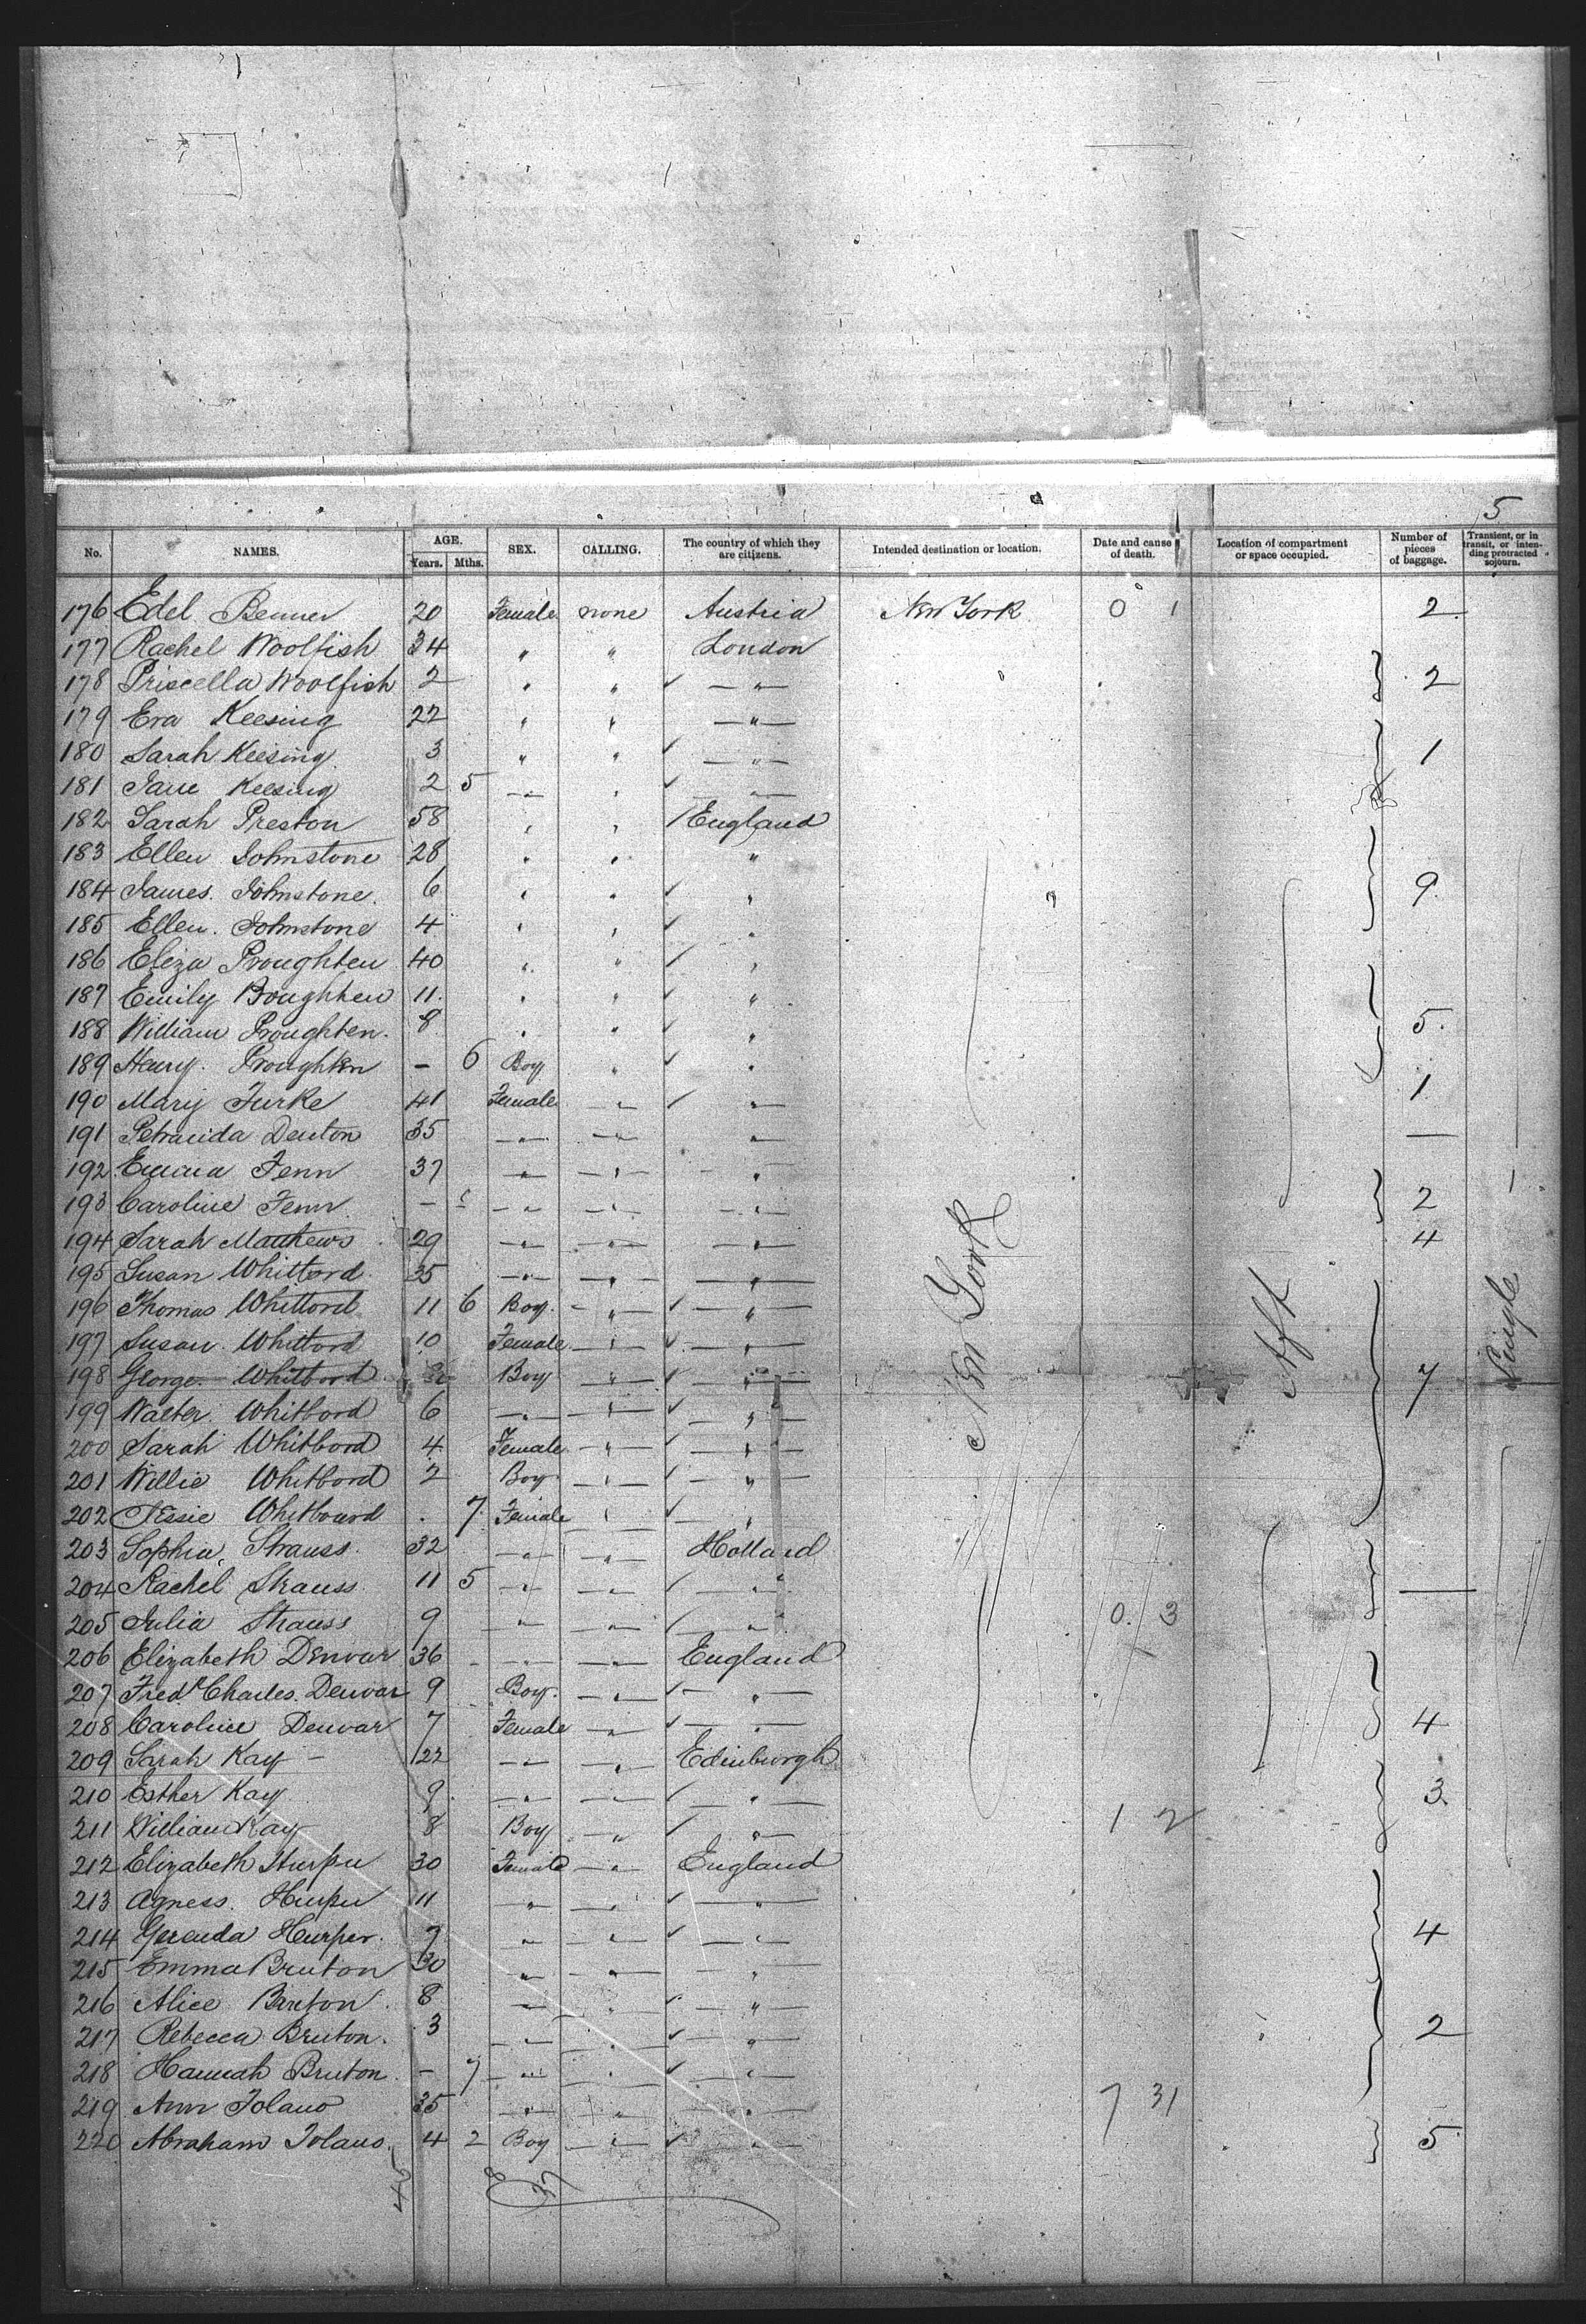 5
No. NAMES. AGE. Years. Mths. SEX. CALLING. The country of which they are citizens. Intended destination or location. Date and cause of death. Location of compartment or space occupied. Number of pieces of baggage. Transient, or in transit, or intending protracted sojourn.
176 Edel Benner 20 Female none Austria New York 0 1 2
177 Rachel Woolfish 34 " " London
178 Priscella Woolfish 2 " " — " — 2
179 Eva Keesing 22 " " — " —
180 Sarah Keesing 3 " " — " — 1
181 Jane Keesing 2 5 — " — " — " —
182 Sarah Preston 58 " " England
183 Ellen Johnstone 28 " " "
184 James. Johnstone. 6 " " " 9
185 Ellen. Johnstone 4 " " "
186 Eliza Proughten 40 " " "
187 Emily Broughten 11. " " "
188 William Proughten. 8 " " " 5.
189 Henry. Proughten – 6 Boy " "
190 Mary Turke 41 Female — " — " 1
191 Denton 35 — " — — " — " —
192 Emma Fenn 37 — " — — " — "
193 Caroline Fenn. – — " — — " — " 2
194 Sarah Matthews 29 — " — — " — — " — 4
195 Susan Whitford 35 — " — — " — — " —
196 Thomas Whitford 11 6 Boy. — " — — " —
197 Susan Whitford 10 Female — " — — " —
198 George Whitbord Boy — " — — " — 7
199 Walter. Whitbord 6 — " — — " — — " —
200 Sarah Whitbord 4 Female — " — — " —
201 Willie Whitbord 2 Boy — " — — " —
202 Jessie Whitbourd . 7 Female " — " —
203 Sophia Strauss 32 — " — — " — Holland
204 Rachel Strauss 11 5 — " — — " — — " — —
205 Julia Strauss 9 — " — — " — — " — 0. 3
206 Elizabeth Denvar 36 — " — — " — England
207 Fredk Charles. Denvar 9 Boy. — " — — " —
208 Caroline Denvar 7 Female — " — — " — 4
209 Sarah Kay – 22 — " — — " — Edinburgh
210 Esther Kay 9 — " — — " — — " — 3
211 William Kay 8 Boy — " — — " — 1 2
212 Elizabeth 30 Female — " — England
213 Agness. 11 — " — — " — — " —
214 Hurper. 7 — " — — " — — " — 4
215 Emma Bruton 30 — " — — " — — " —
216 Alice Bruton 8 — " — " — " —
217 Rebecca Bruton. 3 — " — — " — — " — 2
218 Hannah Bruton – 7 — " — — " — — " —
219 Ann Tolano 35 — " — — " — — " — 7 31
220 Abraham Tolano. 4 2 Boy — " — — " — 5
New York
Aft
Single
45
8
37